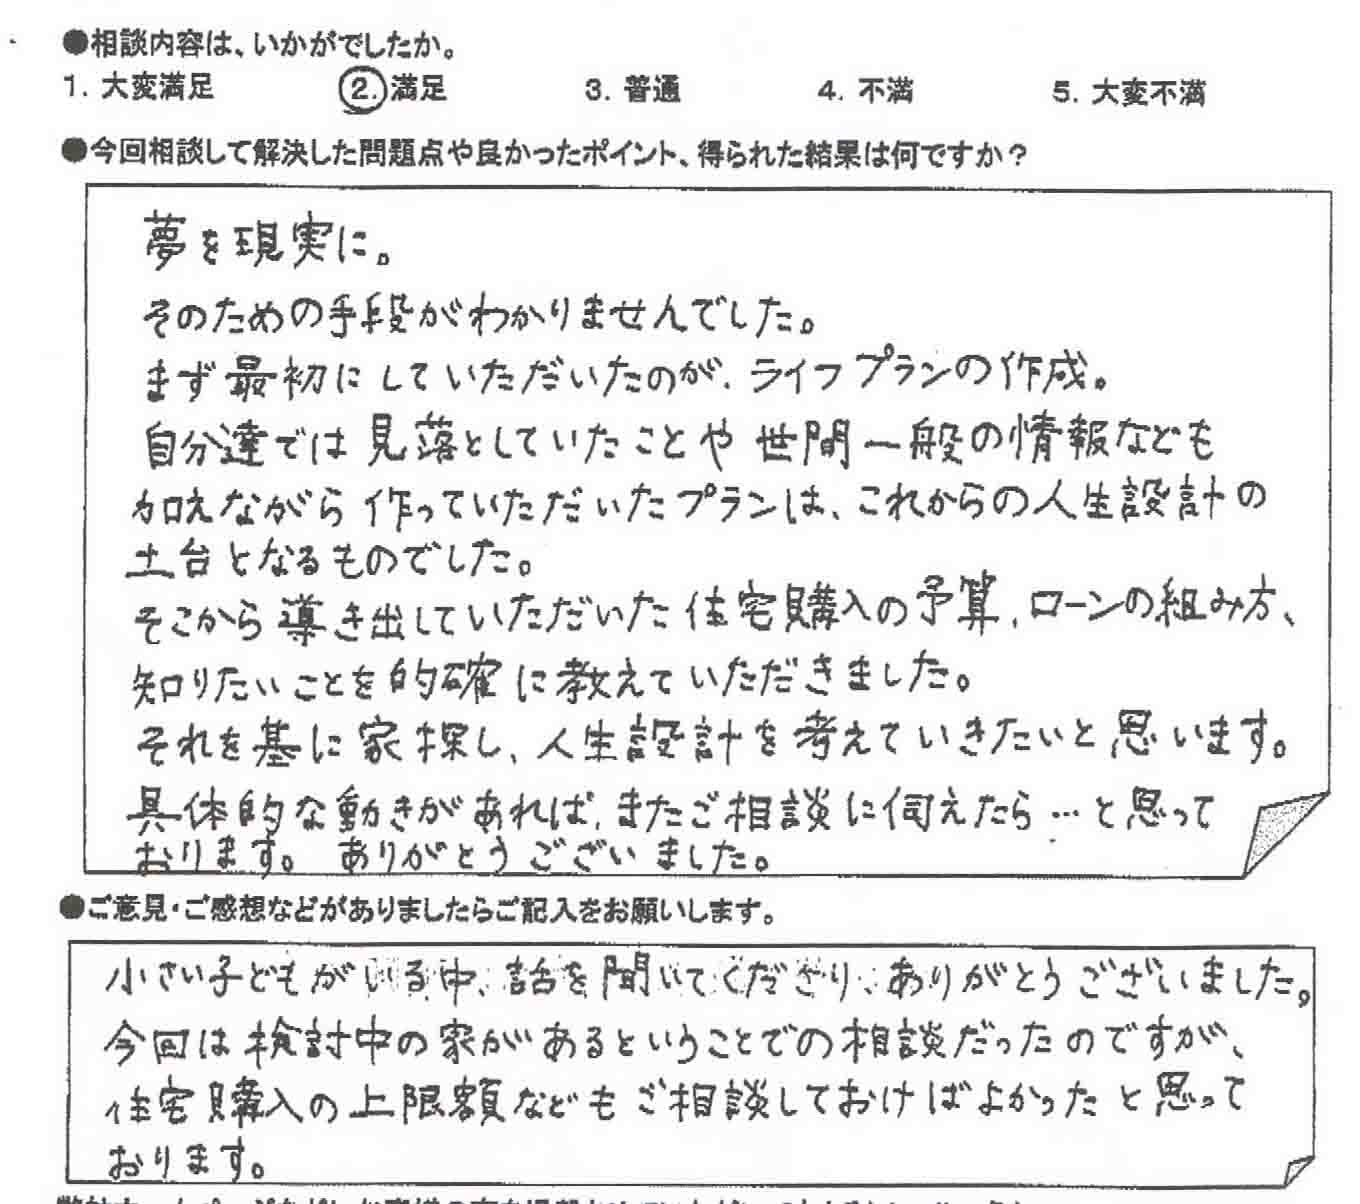 ●相談内容は、いかがでしたか。
1. 大変満足 2. 満足 3. 普通 4. 不満 5. 大変不満
●今回相談して解決した問題点や良かったポイント、得られた結果は何ですか?
夢を現実に。
そのための手段がわかりませんでした。
まず最初にしていただいたのが、ライフプランの作成。
自分達では見落としていたことや世間一般の情報なども
加えながら作っていただいたプランは、これからの人生設計の
土台となるものでした。
そこから導き出していただいた住宅購入の予算、ローンの組み方、
知りたいことを的確に教えていただきました。
それを基に家探し、人生設計を考えていきたいと思います。
具体的な動きがあれば、またご相談に伺えたら…と思って
おります。 ありがとうございました。
●ご意見・ご感想などがありましたらご記入をお願いします。
小さい子どもがいる中、話を聞いてくださり、ありがとうございました。
今回は検討中の家があるということでの相談だったのですが、
住宅購入の上限額などもご相談しておけばよかったと思って
おります。